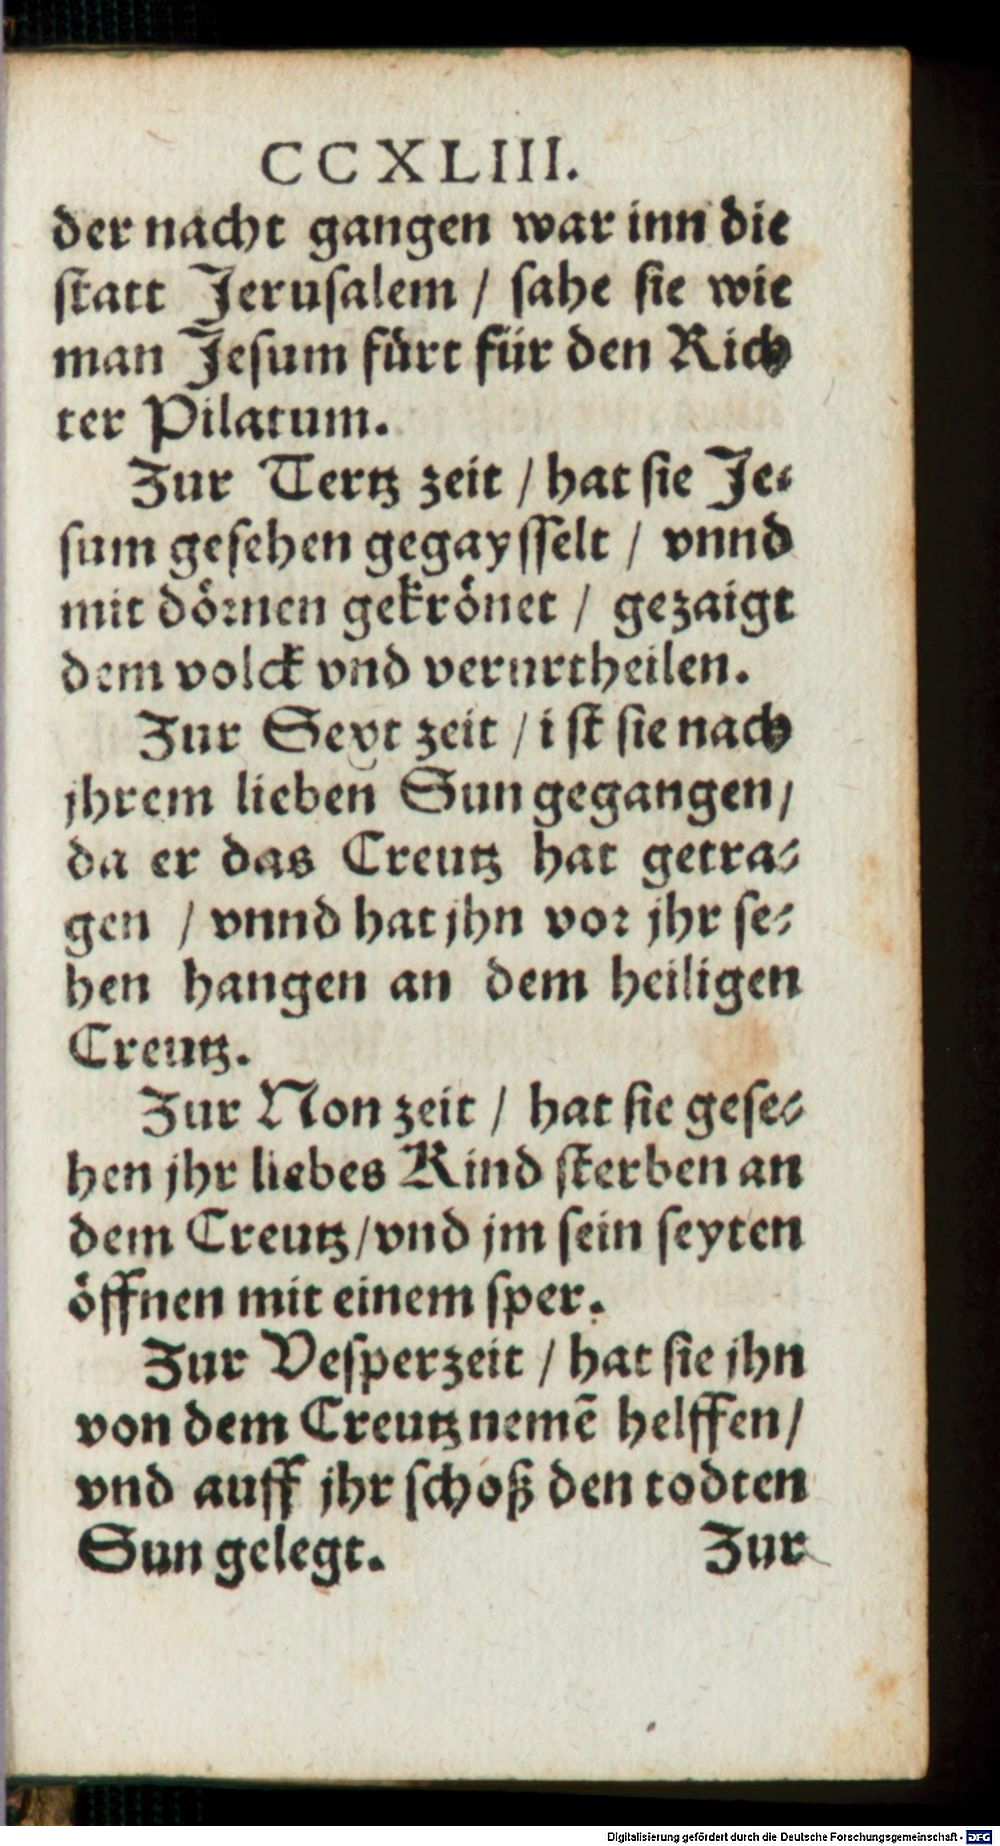 CCXLIII.
der nacht gangen war inn die
statt Jerusalem / sahe sie wie
man Jesum fürt für den Rich
ter Pilatum.
Zur Tertz zeit / hat sie Je-
sum gesehen gegaysselt / vnnd
mit dörnen gekrönet / gezaigt
dem volck vnd verurtheilen.
Zur Sext zeit / ist sie nach
jhrem lieben Sun gegangen /
da er das Creutz hat getra-
gen / vnnd hat jhn vor jhr se-
hen hangen an dem heiligen
Creutz.
Zur Non zeit / hat sie gese-
hen jhr liebes Kind sterben an
dem Creutz / vnd jm sein seyten
öffnen mit einem sper.
Zur Vesperzeit / hat sie jhn
von dem Creutz nemē helffen /
vnd auff jhr schoß den todten
Sun gelegt. Zur
Digitalisierung gefördert durch die Deutsche Forschungsgemeinschaft - DFG